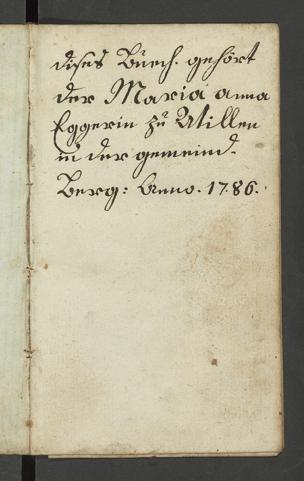 dises Buech. gehört
der Maria anna
Eggerin zu Utillen
in der gemeind.
Berg: Anno. 1786.